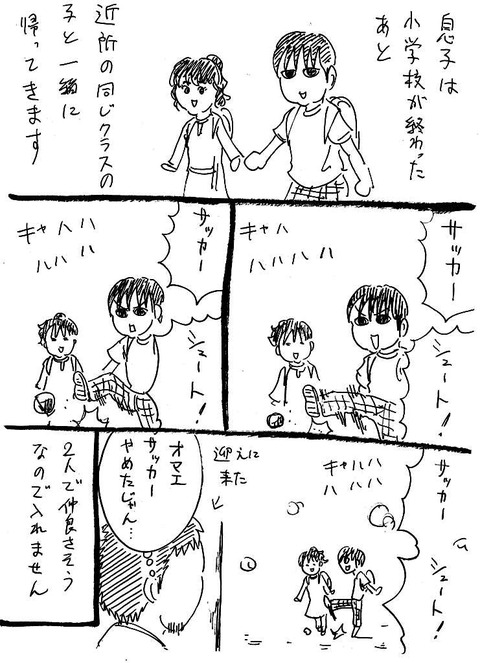 息子は
小学校が終わった
あと
近所の同じクラスの
子と一緒に
帰ってきます
サッカー
シュート!
キャハ
ハハハハ
サッカー
シュート!
キャハハ
ハハハ
サッカー
シュート!
キャハハ
ハハハ
迎えに
来た
オマエ
サッカー
やめたじゃん…
2人で仲良さそう
なので入れません